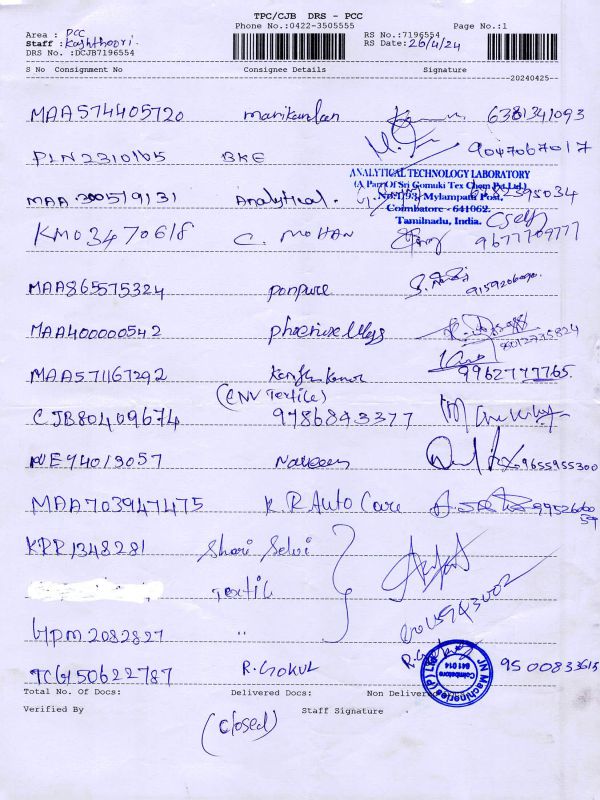 TPC/CJB DRS - PCC
Phone No.:0422-3505555 Page No.:1
Area : PCC RS No.:7196554
Staff : Kashthoori. RS Date: 26/4/24
DRS No. :DCJB7196554
S No Consignment No Consignee Details Signature
20240425
MAA574405720 manikandan 6381341093
PLN2310165 BKE 9047067017
ANALYTICAL TECHNOLOGY LABORATORY
(A Part Of Sri Gomuki Tex Chem Pvt.Ltd.)
MAA300579131 Analytical.
No.1/93, Mylampatti Post,
Coimbatore - 641062.
Tamilnadu, India. (Self)
KM03470618 C. MOHAN 9677709777
MAA865575324 ponpure 9159206090.
MAA400000542
MAA571167292 9962777765.
(CNV Textile)
CJB80409674 9786843377
NE94013057 Naveen 9655955300
MAA703947475 K.R Auto Care
KRR1348281 Shari Selvi
Textile
2082827 "
TCG150622787 R.GOKUL 9500833615
JN Machineries (P) Ltd
Coimbatore
641014
Total No. Of Docs: Delivered Docs: Non Delivered
Verified By Staff Signature
(closed)